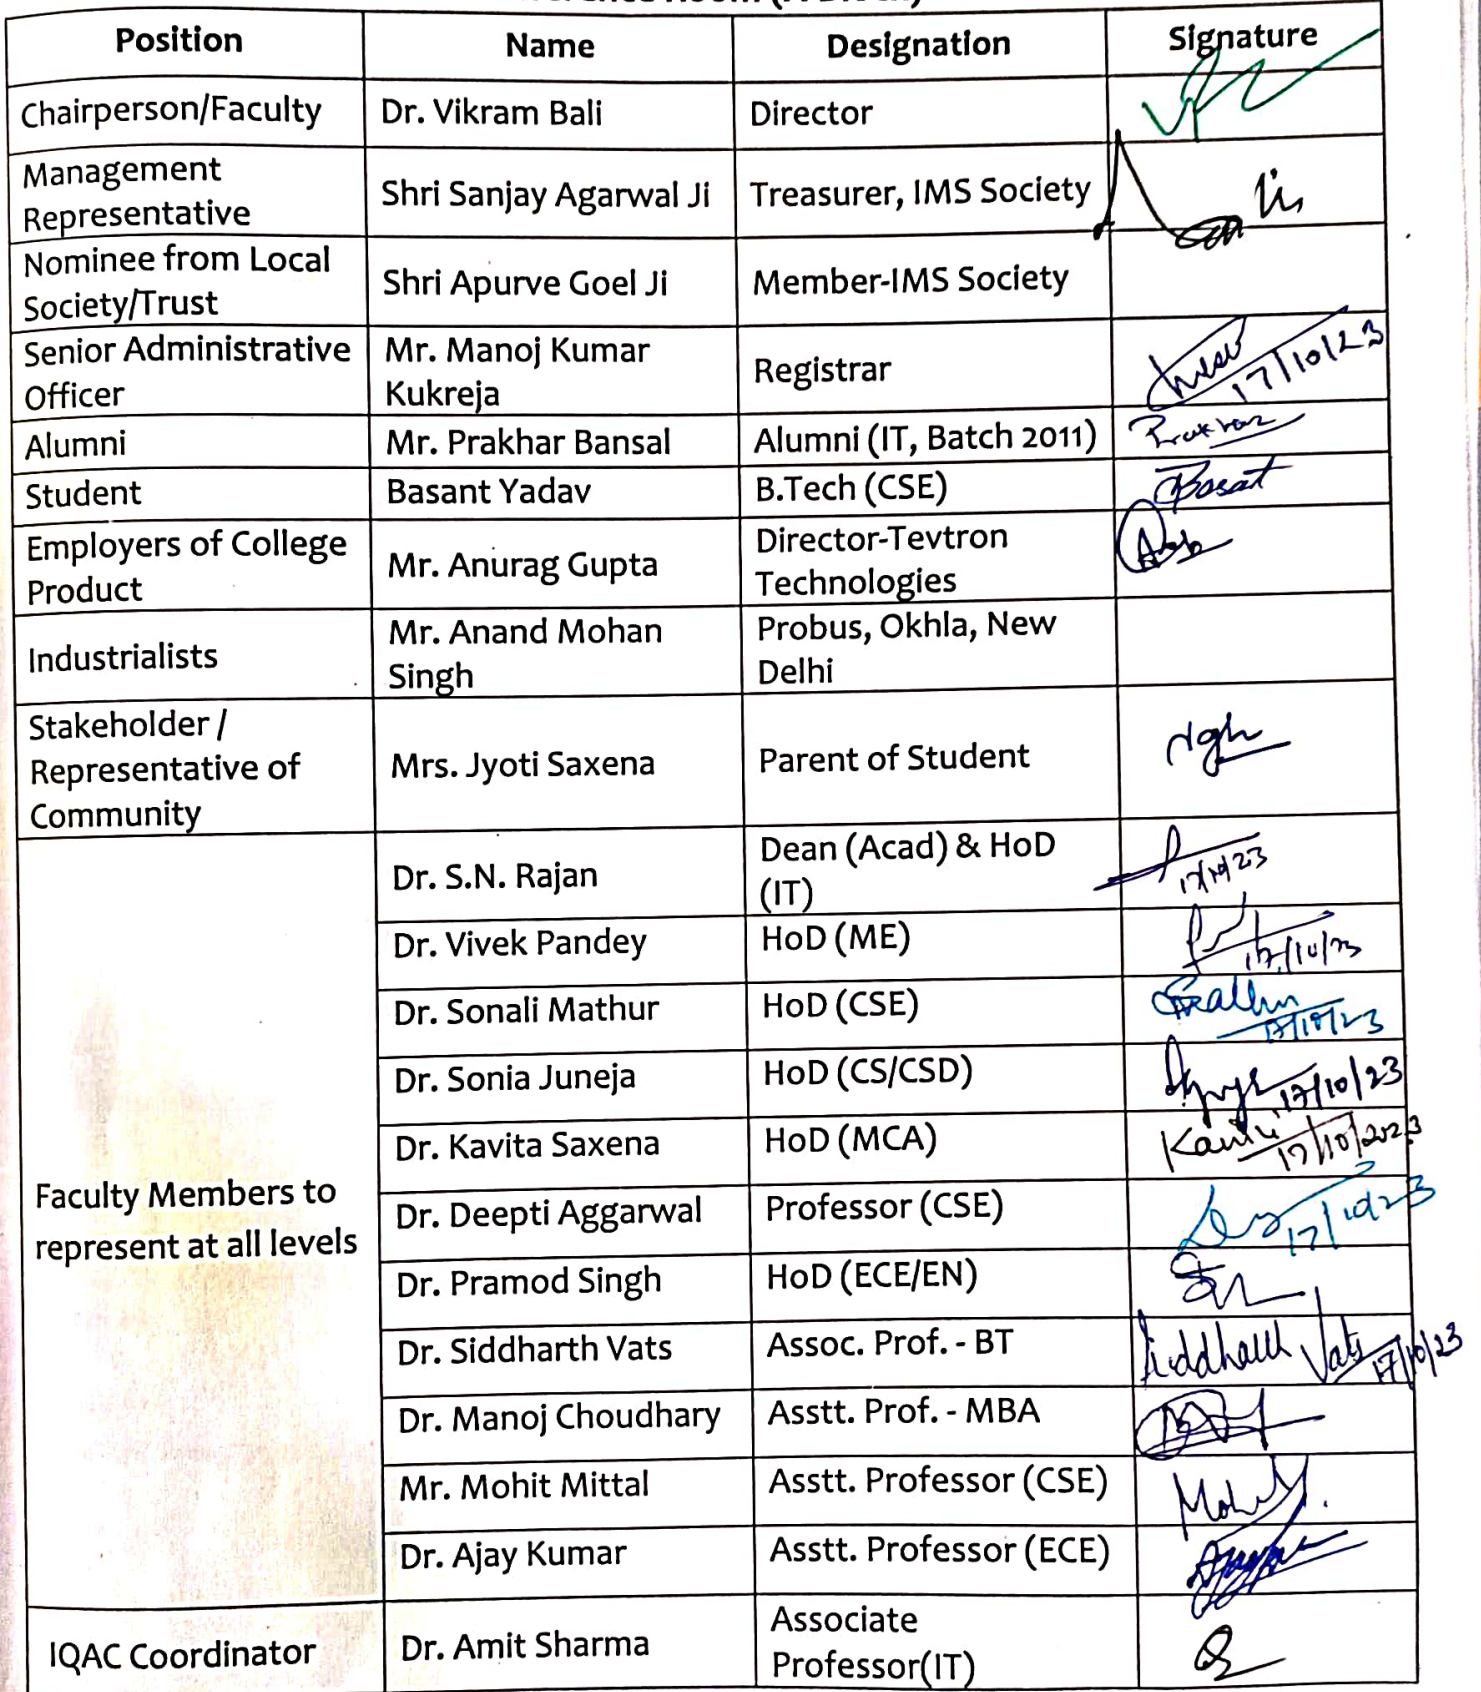 Position Name Designation Signature
Chairperson/Faculty Dr. Vikram Bali Director
Management
Representative Shri Sanjay Agarwal Ji Treasurer, IMS Society
Nominee from Local
Society/Trust Shri Apurve Goel Ji Member-IMS Society
Senior Administrative
Officer Mr. Manoj Kumar
Kukreja Registrar 17/10/23
Alumni Mr. Prakhar Bansal Alumni (IT, Batch 2011) Prakhar
Student Basant Yadav B.Tech (CSE) Basat
Employers of College
Product Mr. Anurag Gupta Director-Tevtron
Technologies
Industrialists Mr. Anand Mohan
Singh Probus, Okhla, New
Delhi
Stakeholder /
Representative of
Community Mrs. Jyoti Saxena Parent of Student
Faculty Members to
represent at all levels
Dr. S.N. Rajan Dean (Acad) & HoD
(IT) 17/10/23
Dr. Vivek Pandey HoD (ME) 17/10/23
Dr. Sonali Mathur HoD (CSE) 17/10/23
Dr. Sonia Juneja HoD (CS/CSD) 17/10/23
Dr. Kavita Saxena HoD (MCA) 17/10/2023
Dr. Deepti Aggarwal Professor (CSE) 17/10/23
Dr. Pramod Singh HoD (ECE/EN)
Dr. Siddharth Vats Assoc. Prof. - BT Siddharth Vats 17/10/23
Dr. Manoj Choudhary Asstt. Prof. - MBA
Mr. Mohit Mittal Asstt. Professor (CSE)
Dr. Ajay Kumar Asstt. Professor (ECE)
IQAC Coordinator Dr. Amit Sharma Associate
Professor(IT)